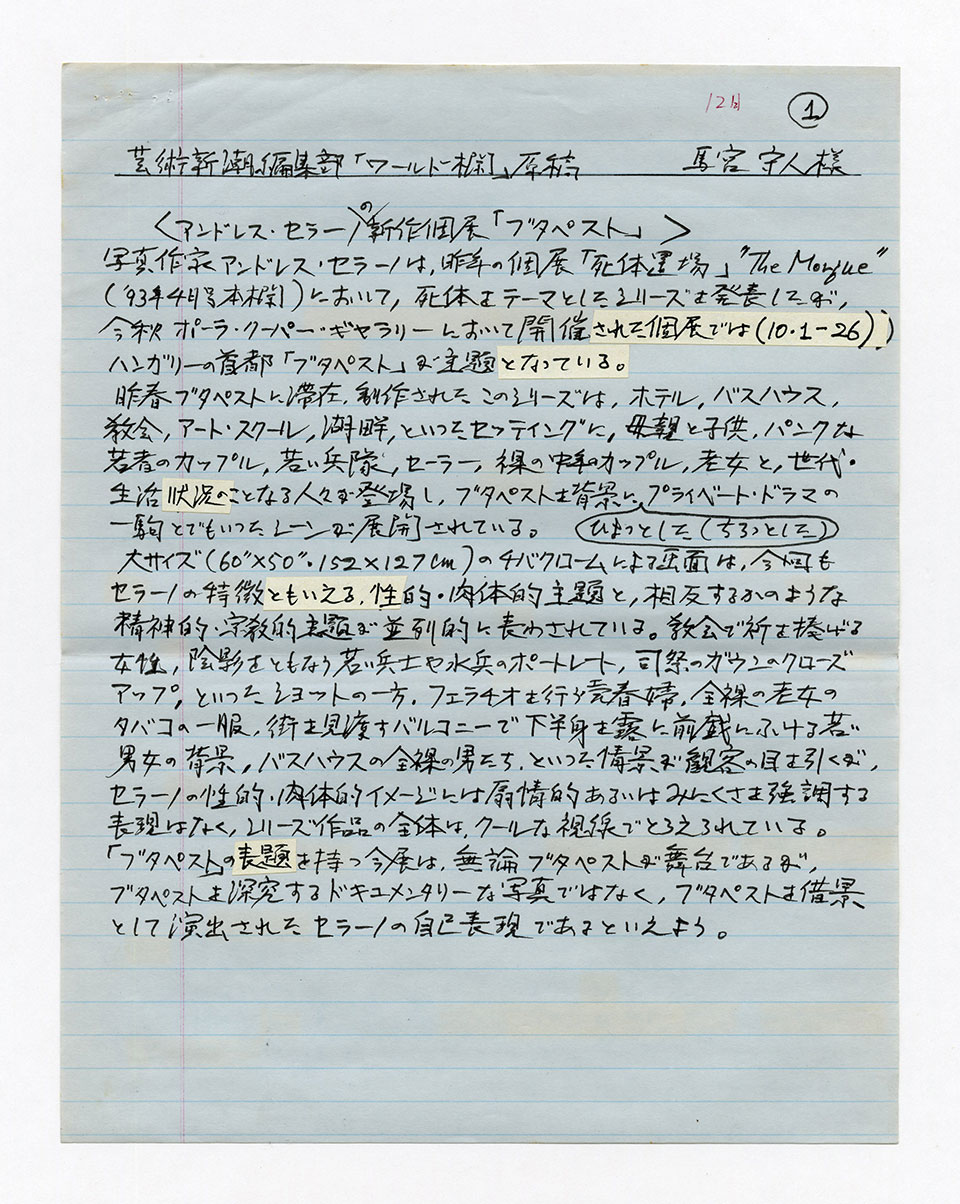 12月 ①
芸術新潮編集部「ワールド欄」原稿 馬宮守人様
〈アンドレス・セラーノの新作個展「ブタペスト」〉
写真作家アンドレス・セラーノは、昨年の個展「死体置場」"The Morgue"
('93年4月号本欄)において、死体をテーマとしたシリーズを発表したが、
今秋ポーラ・クーパー・ギャラリーにおいて開催された個展では(10・1-26)、
ハンガリーの首都「ブタペスト」が主題となっている。
昨春ブタペストに滞在、制作されたこのシリーズは、ホテル、バスハウス、
教会、アート・スクール、湖畔、といったセッティングに、母親と子供、パンクな
若者のカップル、若い兵隊、セーラー、裸の中年のカップル、老女と、世代・
生活状況のことなる人々が登場し、ブタペストを背景に、プライベート・ドラマの
一駒とでもいったシーンが展開されている。 ひょっとした(ちょっとした)
大サイズ(60"×50"・152×127cm)のチバクロームによる画面は、今回も
セラーノの特徴ともいえる、性的・肉体的主題と、相反するかのような
精神的・宗教的主題が並列的に表わされている。教会で祈を捧げる
女性、陰影をともなう若い兵士や水兵のポートレート、司祭のガウンのクローズ
アップ、といったショットの一方、フェラチオを行う売春婦、全裸の老女の
タバコの一服、街を見渡すバルコニーで下半身を露に前戯にふける若い
男女の背景、バスハウスの全裸の男たち、といった情景が観客の目を引くが、
セラーノの性的・肉体的イメージには扇情的あるいはみにくさを強調する
表現はなく、シリーズ作品の全体は、クールな視線でとらえられている。
「ブタペスト」の表題を持つ今展は、無論ブタペストが舞台であるが、
ブタペストを深究するドキュメンタリーな写真ではなく、ブタペストを借景
として演出されたセラーノの自己表現であるといえよう。